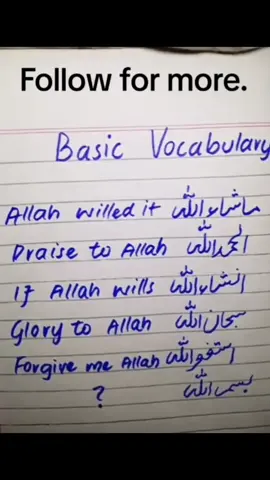 Follow for more.
Basic Vocabulary
Allah willed it ماشاء الله
Praise to Allah الحمد الله
If Allah wills انشاء الله
Glory to Allah سبحان الله
Forgive me Allah استغفر الله
? بسم الله